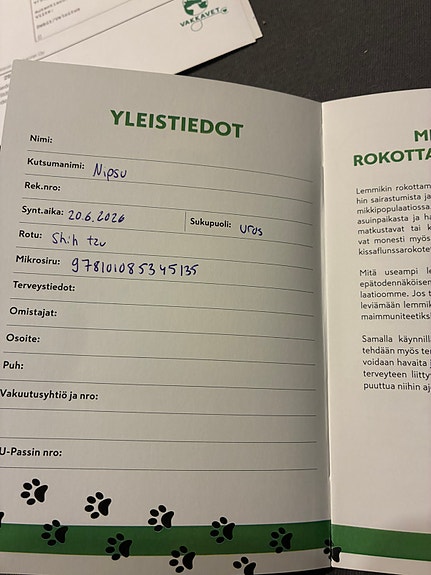 VAKKAVET
YLEISTIEDOT
Nimi:
Kutsumanimi: Nipsu
Rek.nro:
Synt.aika: 20.6.2026 Sukupuoli: uros
Rotu: Shih tzu
Mikrosiru: 978101085345135
Terveystiedot:
Omistajat:
Osoite:
Puh:
Vakuutusyhtiö ja nro:
U-Passin nro:
ROKOTTA
Lemmikin rokottam
hin sairastumista ja
mikkipopulaatiossa.
asuinpaikasta ja ha
matkustavat tai k
vat monesti myös
kissaflunssarokote
Mitä useampi le
epätodennäköisem
laatioomme. Jos t
leviämään lemmik
maimmuniteetiks
Samalla käynnill
tehdään myös ter
voidaan havaita j
terveyteen liitty
puuttua niihin aj